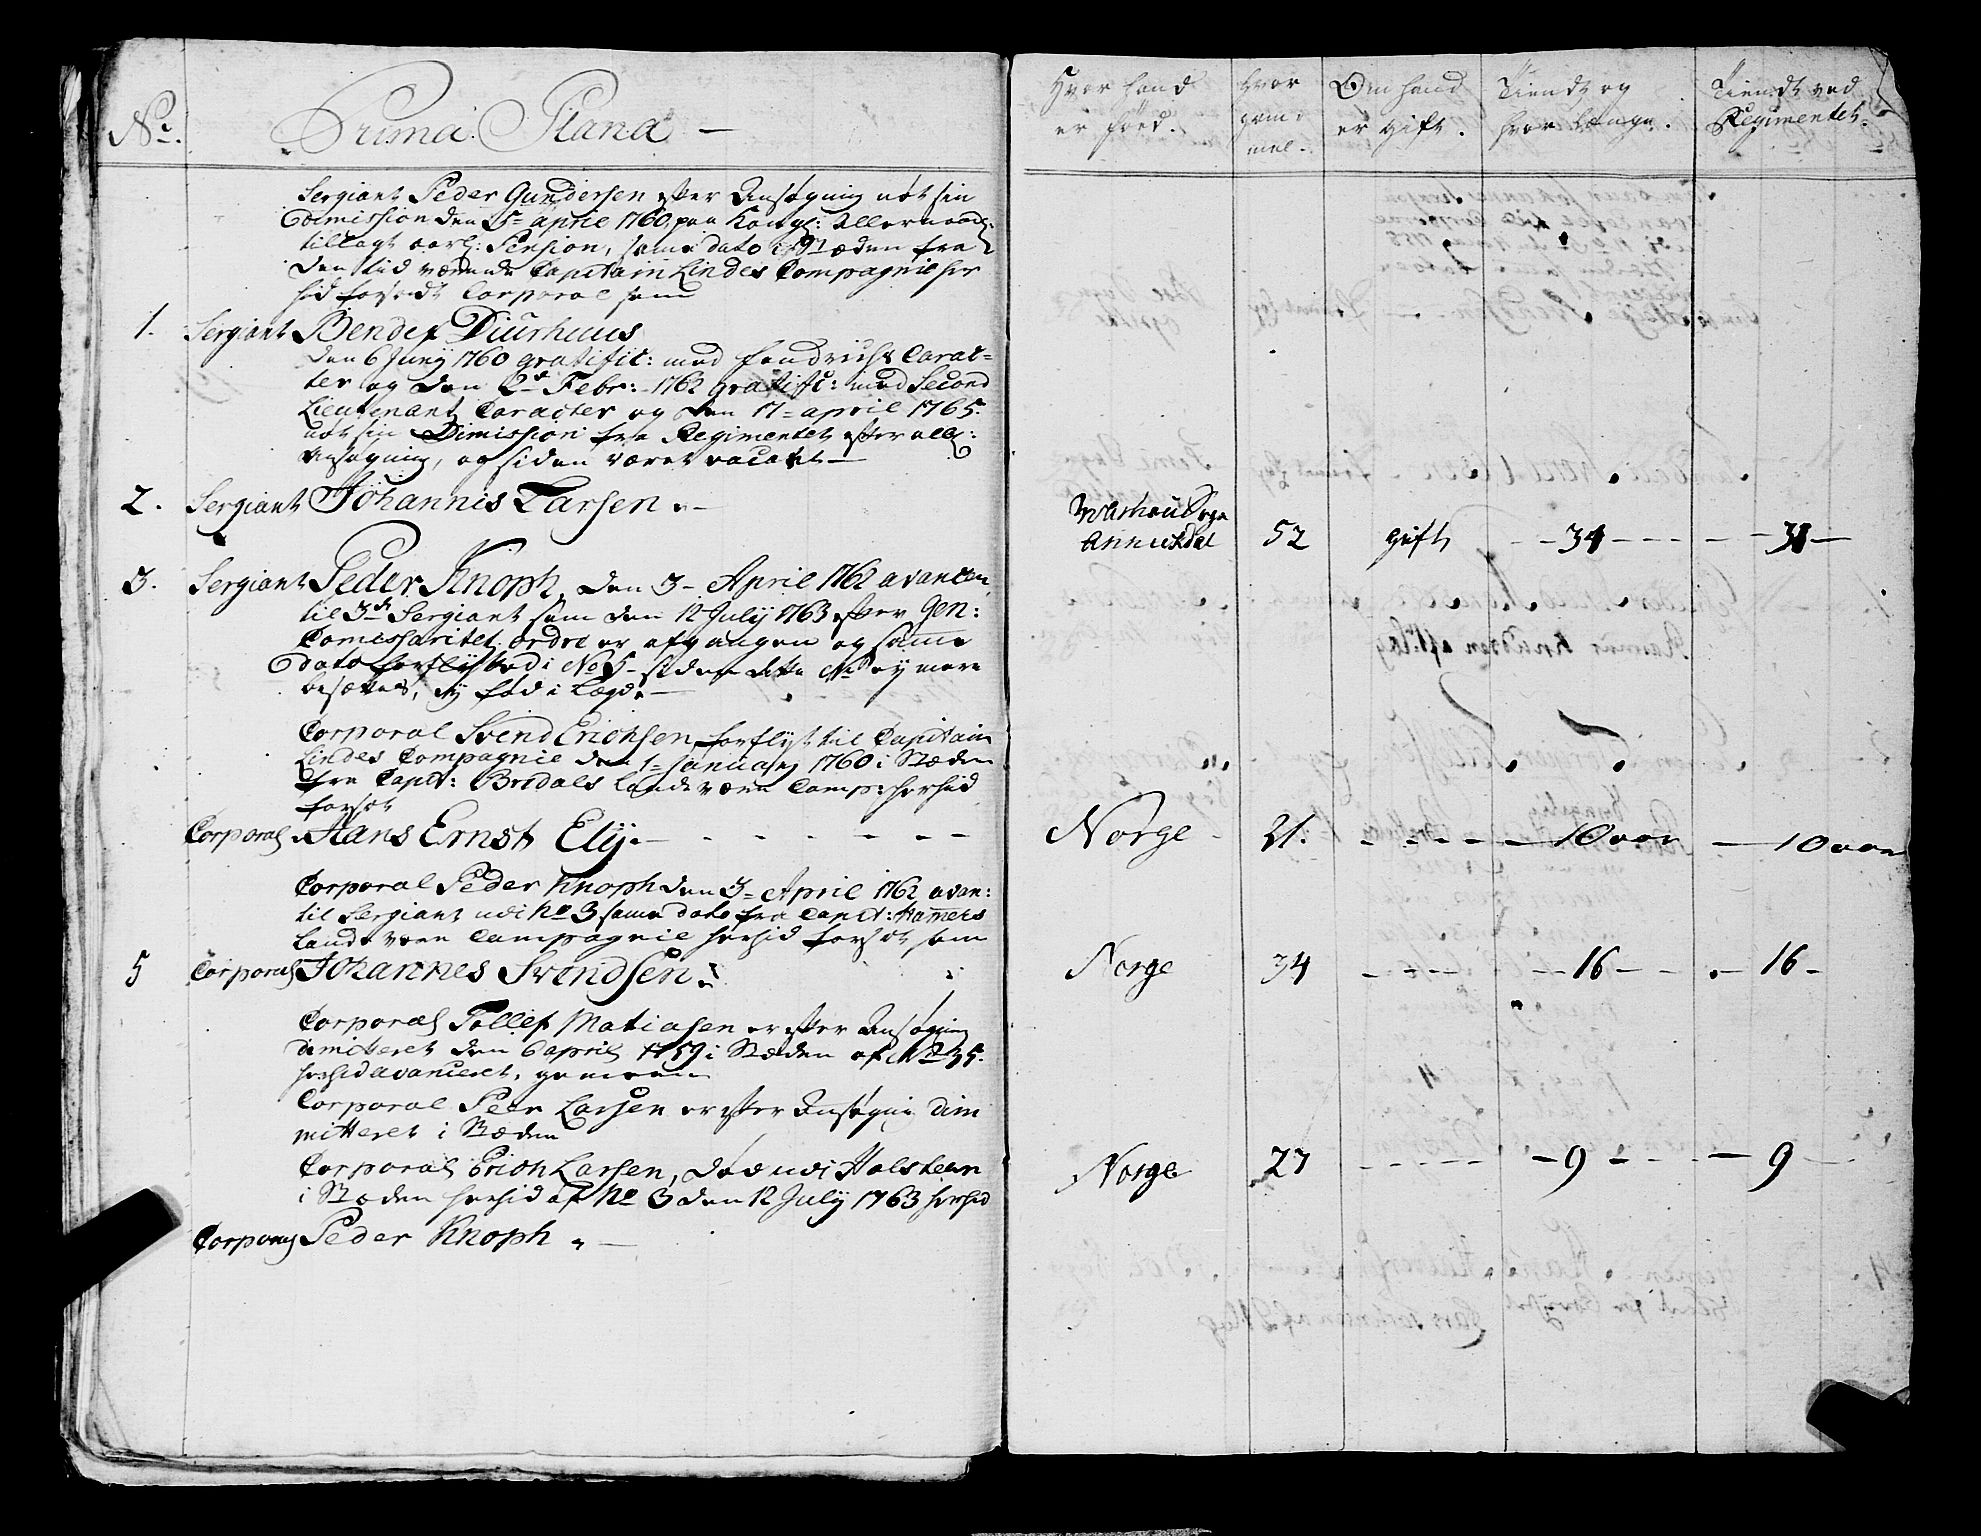 No. Prima Plana —
Sergiant Peder Gundersen efter Ansøgning nöt sin
Dimission den 5te april 1760, paa Kongl: Allernaad:
tillagt aarl: Pension, same dato i Stæden fra
den tid værende Capitain Lindes Compagnie her
hid forsadt Corporal som
1. Sergiant Bendix Diurhuus
den 6 Junij 1760 gratific: med Fendrichs Carac=
ter og den 2d Febr: 1762 gratific: med Second
Lieutenant Caracter og den 17= april 1765.
nöt sin Dimission fra Regimentet efter all:
ansøgning, og siden været vacant —
2. Sergiant Johannis Larsen. —
3. Sergiant Peder Knoph, den 3= April 1762 avancen
til 3de Sergiant som den 12 Julij 1763 efter Gen:
Comissaritet ordre er afgangen og samme
dato forflyttet i No 5 siden dette No ey mere
besættes, ey fød i Lægd. —
Corporal Svend Erichsen, forflyt til Capitain
Lindes Compagnie den 1= January 1760 i Stæden
fra Capt: Bredals landeværn Comp: herhid
forsat
Corporal Hans Ernst Elÿ. — - - - - - -
Corporal Peder Knoph den 3= April 1762 avan:
til Sergiant udi No 3 same dato fra Capt: Hamers
Landeværn Compagnie herhid forsat, som
5 Corporal Johannes Svendsen
Corporal Tollef Matiasen er efter Ansøgning
dimitteret den 6 april 1759 i Stæden af No 35.
herhid avanceret, gemeen
Corporal Peer Larsen er efter Ansøgning dim
mitteret i Stæden
Corporal Erich Larsen, død udi Holsteen
i Stæden herhid af No 3 den 12 Julij 1763 herhid
Corporal Peder Knoph. —
Hvor hand er fød.
Hvor gammel.
Om hand er gift.
Tiendt og hvor længe.
Tiendt ved Regimentet.
Sogn
52 gift - - 34 - - - - - 31 —
Norge 21. - - - - 10 aar — 10 aar
Norge 34 - - - - - - 16 - - - 16 -
Norge 27 - - - - - - 9 - - - - 9 - -